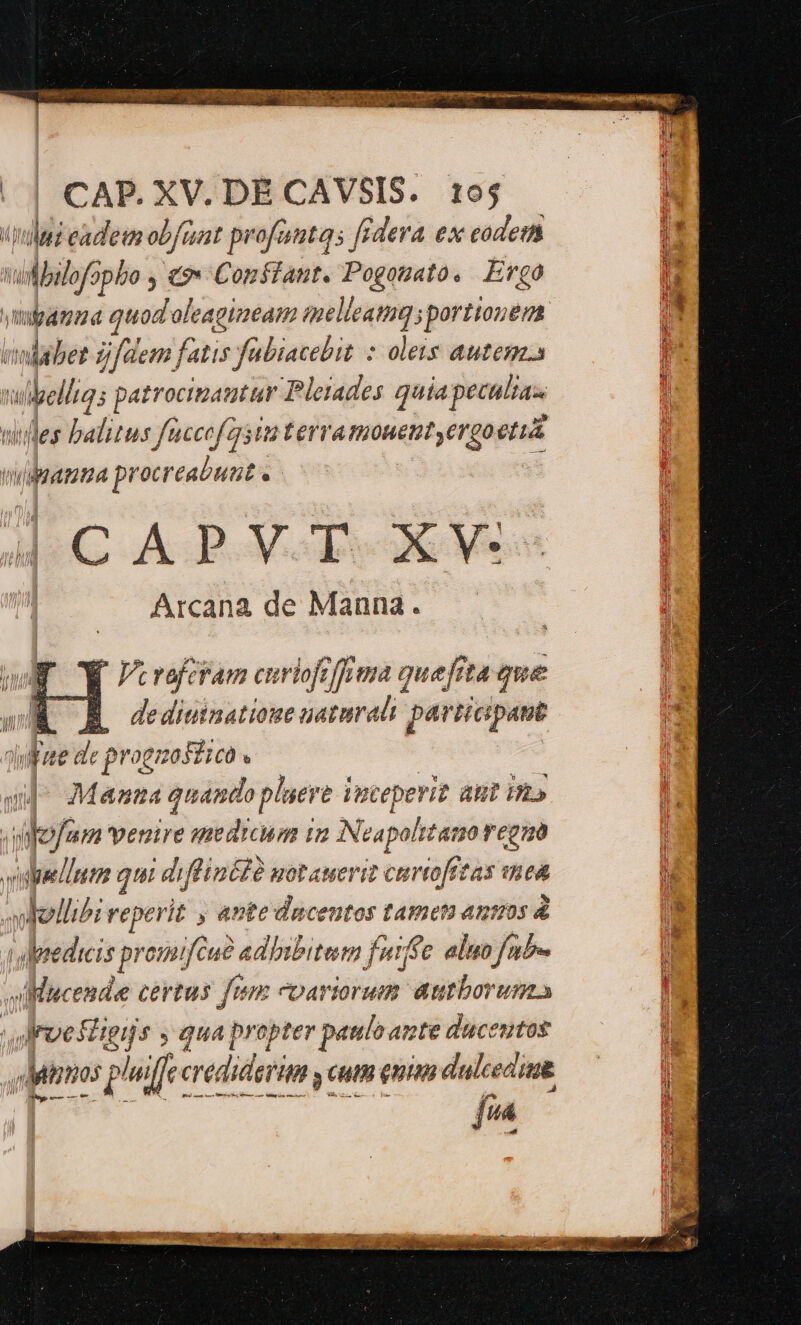 CAP. XV. DE CAVSIS. 105
eadem obſunt profuntq; ſidera ex eodem
philoſopho, & Conſtant. Pogonato. Ergo
manna quod oleagineam melleamq; portionem
habet ijſdem fatis ſubiacebit : oleis autem
melliq; patrocinantur Pleiades quia peculia-
res halitus ſuccoſq; in terra mouent, ergo etiã
manna procreabunt.
CAPVT XV.
Arcana de Manna.
HVc referam curioſiſſima queſita que
de diuinatione naturali participant
ſiue de prognoſtico.
Manna quando pluere inceperit aut in
vſum venire medicum in Neapolitano regno
nullum qui diſtinctè notauerit curioſitas mea
reperit, ante ducentos tamen annos à
medicis promiſcuè adhibitum fuiſſe aluo ſub-
ducende certus ſum variorum authorum
veſtigijs, qua propter paulo ante ducentos
annos pluiſſe crediderim, cum enim dulcedine
ſua